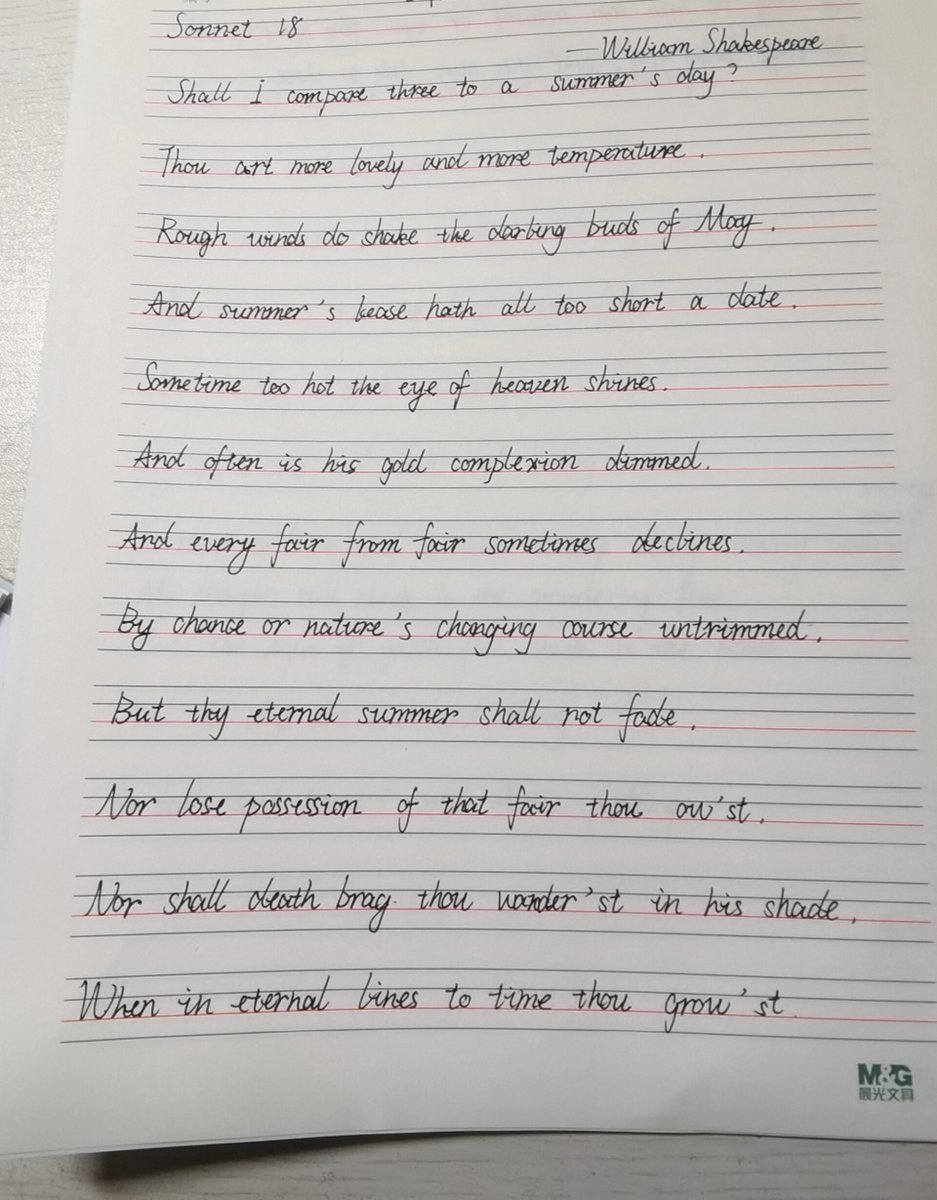 Sonnet 18
—William Shakespeare
Shall I compare three to a summer's day?
Thou art more lovely and more temperature.
Rough winds do shake the darling buds of May.
And summer's lease hath all too short a date.
Sometime too hot the eye of heaven shines.
And often is his gold complexion dimmed.
And every fair from fair sometimes declines.
By chance or nature's changing course untrimmed.
But thy eternal summer shall not fade.
Nor lose possession of that fair thou ow'st.
Nor shall death brag. thou wander'st in his shade.
When in eternal lines to time thou grow'st
M&G
晨光文具